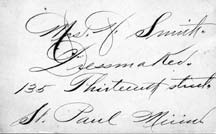 Mrs. V. Smith.
Dressmaker.
135 Thirteenth street.
St. Paul Minn